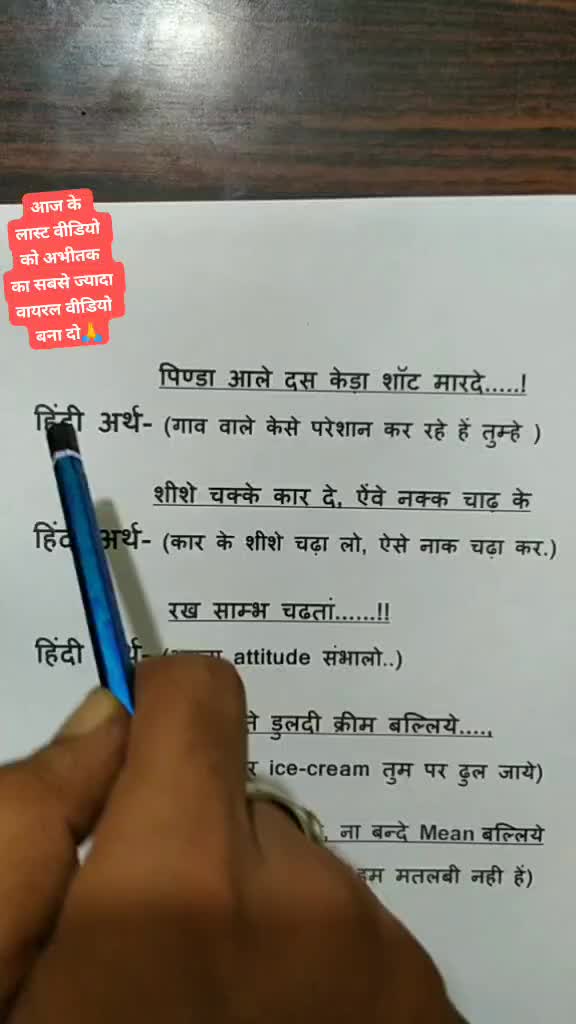 आज के
लास्ट वीडियो
को अभीतक
का सबसे ज्यादा
वायरल वीडियो
बना दो🙏
पिण्डा आले दस केड़ा शॉट मारदे.....!
हिंदी अर्थ- (गाव वाले केसे परेशान कर रहे हें तुम्हे )
शीशे चक्के कार दे, ऐंवे नक्क चाढ़ के
अर्थ- (कार के शीशे चढ़ा लो, ऐसे नाक चढ़ा कर.)
रख साम्भ चढतां......!!
हिंदी attitude संभालो..)
डुलदी क्रीम बल्लिये....,
ice-cream तुम पर ढुल जाये)
, ना बन्दे Mean बल्लिये
हम मतलबी नही हें)